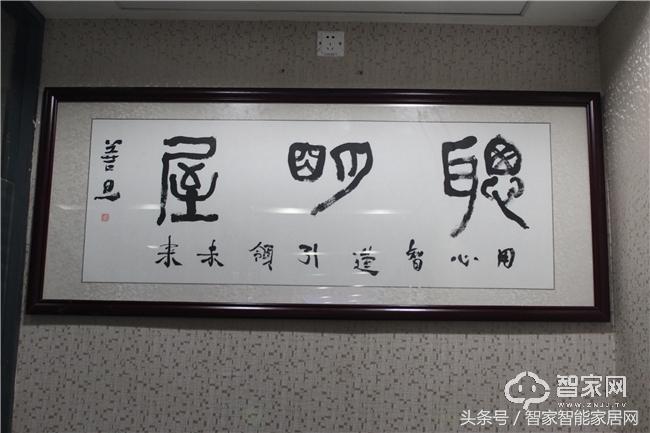 聰明屋
用心智造引領未来
智家网
WWW.ZNJJ.TV
头条号／智家智能家居网